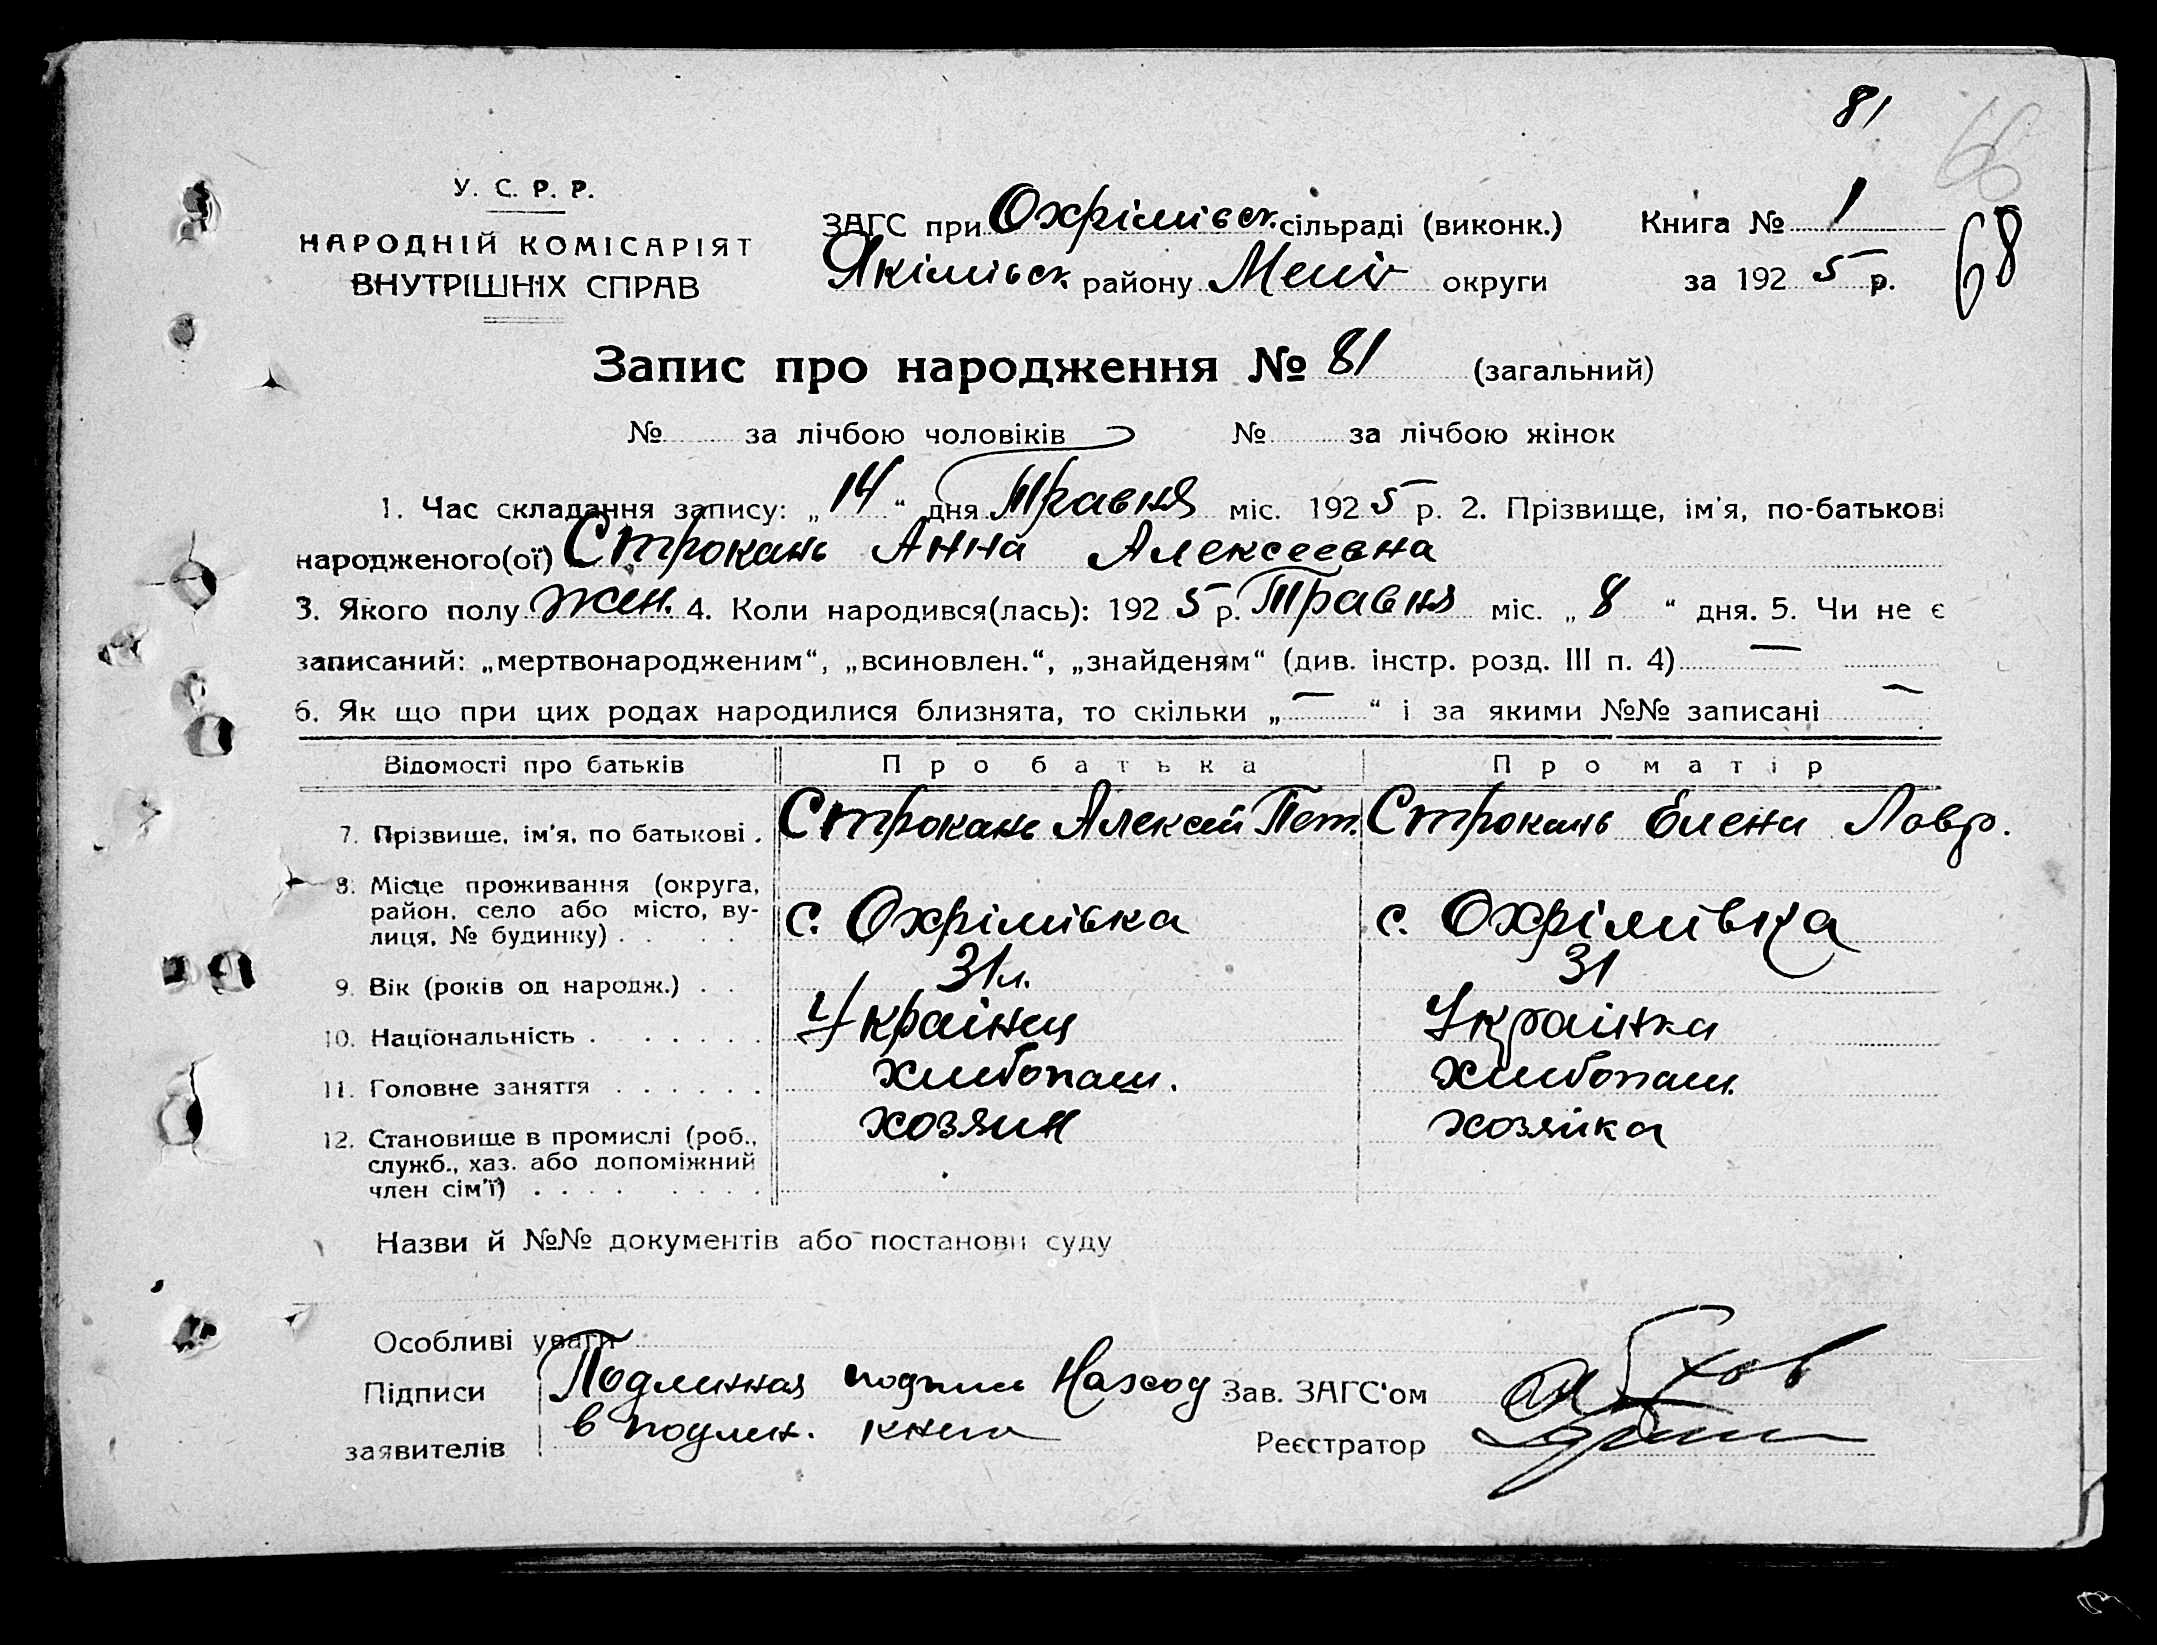 81
66
У. С. Р. Р.
НАРОДНІЙ КОМІСАРІЯТ
ВНУТРІШНІХ СПРАВ
ЗАГС при Охрімівск. сільраді (виконк.)
Якімівск району Меліт округи
Книга № 1
за 192 5 р.
68
Запис про народження № 81 (загальний)
№ за лічбою чоловіків № за лічбою жінок
1. Час складання запису: „ 14 “ дня Травня міс. 192 5 р. 2. Прізвище, ім'я, по-батькові
народженого(ої) Строкань Анна Алексеевна
3. Якого полу жен. 4. Коли народився(лась): 192 5 р. Травня міс. „ 8 “ дня. 5. Чи не є
записаний: „мертвонародженим“, „всиновлен.“, „знайденям“ (див. інстр. розд. III п. 4) —
6. Як що при цих родах народилися близнята, то скільки „ — “ і за якими №№ записані —
Відомості про батьків Про батька Про матір
7. Прізвище, ім'я, по батькові . Строкань Алексей Пет. Строкань Елена Лавр.
8. Місце проживання (округа,
район, село або місто, ву-
лиця, № будинку) . . . . с. Охрімівка с. Охрімівка
9. Вік (років од народж.) . . 31 л. 31
10. Національність . . . . . . Українец Українка
11. Головне заняття . . . . . . хлибопаш. хлибопаш.
12. Становище в промислі (роб., хозяин хозяйка
служб., хаз. або допоміжний
член сім'ї) . . . . . . . .
Назви й №№ документів або постанови суду
Особливі уваги
Підписи Подлинная подпись Наход Зав. ЗАГС'ом
заявителів в подлин. книге Реєстратор